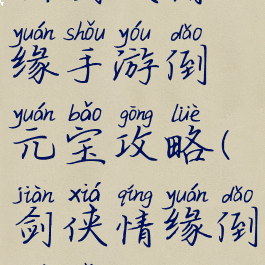 yuán shǒu yóu dǎo
缘手游倒
yuán bǎo gōng lüè
元宝攻略(
jiàn xiá qíng yuán dǎo
剑侠情缘倒